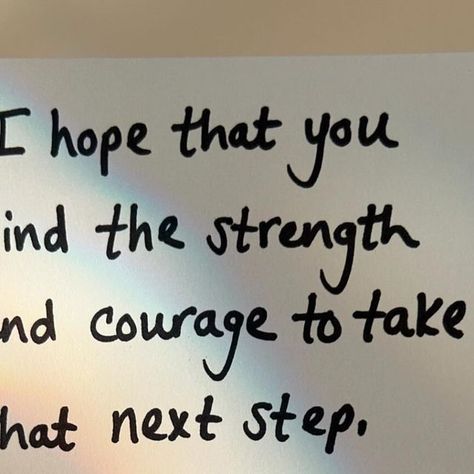 I hope that you
ind the strength
nd courage to take
hat next step.